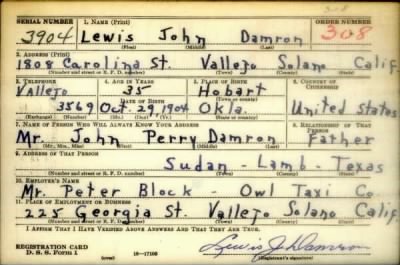 3-8
SERIAL NUMBER 1. NAME (Print) ORDER NUMBER
3904 Lewis John Damron 308
(First) (Middle) (Last)
2. ADDRESS (Print)
1808 Carolina St. Vallejo Solano Calif.
(Number and street or R. F. D. number) (Town) (County) (State)
3. TELEPHONE 4. AGE IN YEARS 5. PLACE OF BIRTH 6. COUNTRY OF CITIZENSHIP
Vallejo 35 Hobart
DATE OF BIRTH (Town or county)
3569 Oct. 29 1904 Okla. United States
(Exchange) (Number) (Mo.) (Day) (Yr.) (State or country)
7. NAME OF PERSON WHO WILL ALWAYS KNOW YOUR ADDRESS 8. RELATIONSHIP OF THAT PERSON
Mr. John Perry Damron Father
(Mr., Mrs., Miss) (First) (Middle) (Last)
9. ADDRESS OF THAT PERSON
Sudan - Lamb - Texas
(Number and street or R. F. D. number) (Town) (County) (State)
10. EMPLOYER'S NAME
Mr. Peter Block - Owl Taxi Co.
11. PLACE OF EMPLOYMENT OR BUSINESS
225 Georgia St. Vallejo Solano Calif.
(Number and street or R. F. D. number) (Town) (County) (State)
I AFFIRM THAT I HAVE VERIFIED ABOVE ANSWERS AND THAT THEY ARE TRUE.
REGISTRATION CARD
D. S. S. FORM 1 16—17105 Lewis J. Damron
(Registrant's signature)